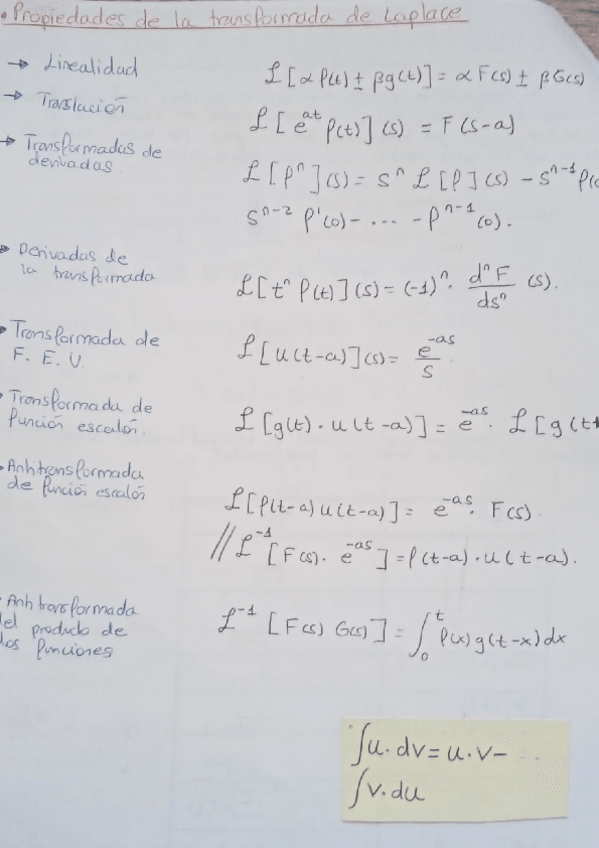 • Propiedades de la transformada de Laplace
→ Linealidad ℒ[αf(t) ± βg(t)] = αF(s) ± βG(s)
→ Traslación ℒ[e^{at} f(t)](s) = F(s-a)
→ Transformadas de
derivadas. ℒ[fⁿ](s) = sⁿ ℒ[f](s) - s^{n-1} f(o
s^{n-2} f'(o) - ... - f^{n-1}(o).
• Derivadas de
la transformada ℒ[tⁿ f(t)](s) = (-1)ⁿ · dⁿF/dsⁿ (s).
• Transformada de
F. E. U. ℒ[u(t-a)](s) = e^{-as}/s.
• Transformada de
función escalón. ℒ[g(t) · u(t-a)] = e^{-as} · ℒ[g(t+
• Antitransformada
de función escalón ℒ[f(t-a) u(t-a)] = e^{-as} · F(s).
// ℒ^{-1}[F(s) · e^{-as}] = f(t-a) · u(t-a).
• Antitransformada
del producto de
dos funciones ℒ^{-1}[F(s) G(s)] = ∫₀ᵗ f(x) g(t-x) dx
∫u. dv = u. v - ...
∫v. du